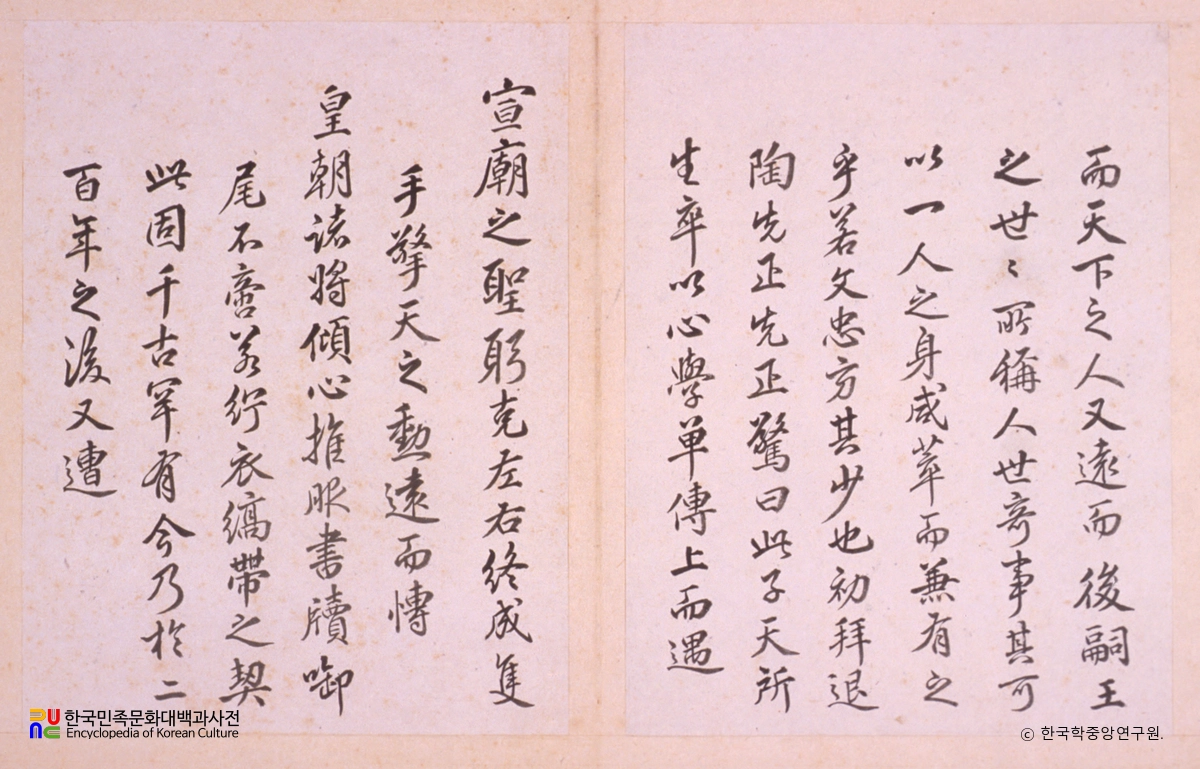 而天下之人又遠而後嗣王
之世々所稱人世奇事其可
以一人之身咸萃而兼有之
乎若文忠方其少也初拜退
陶先正先正驚曰此子天所
生卒以心學單傳上而遇
宣廟之聖躬克左右終成隻
手擎天之勳遠而
皇朝諸將傾心推眼書牘啣
尾不啻若紵衣縞帶之契
此固千古罕有今乃於二
百年之後又遭
한국민족문화대백과사전
Encyclopedia of Korean Culture
ⓒ 한국학중앙연구원.